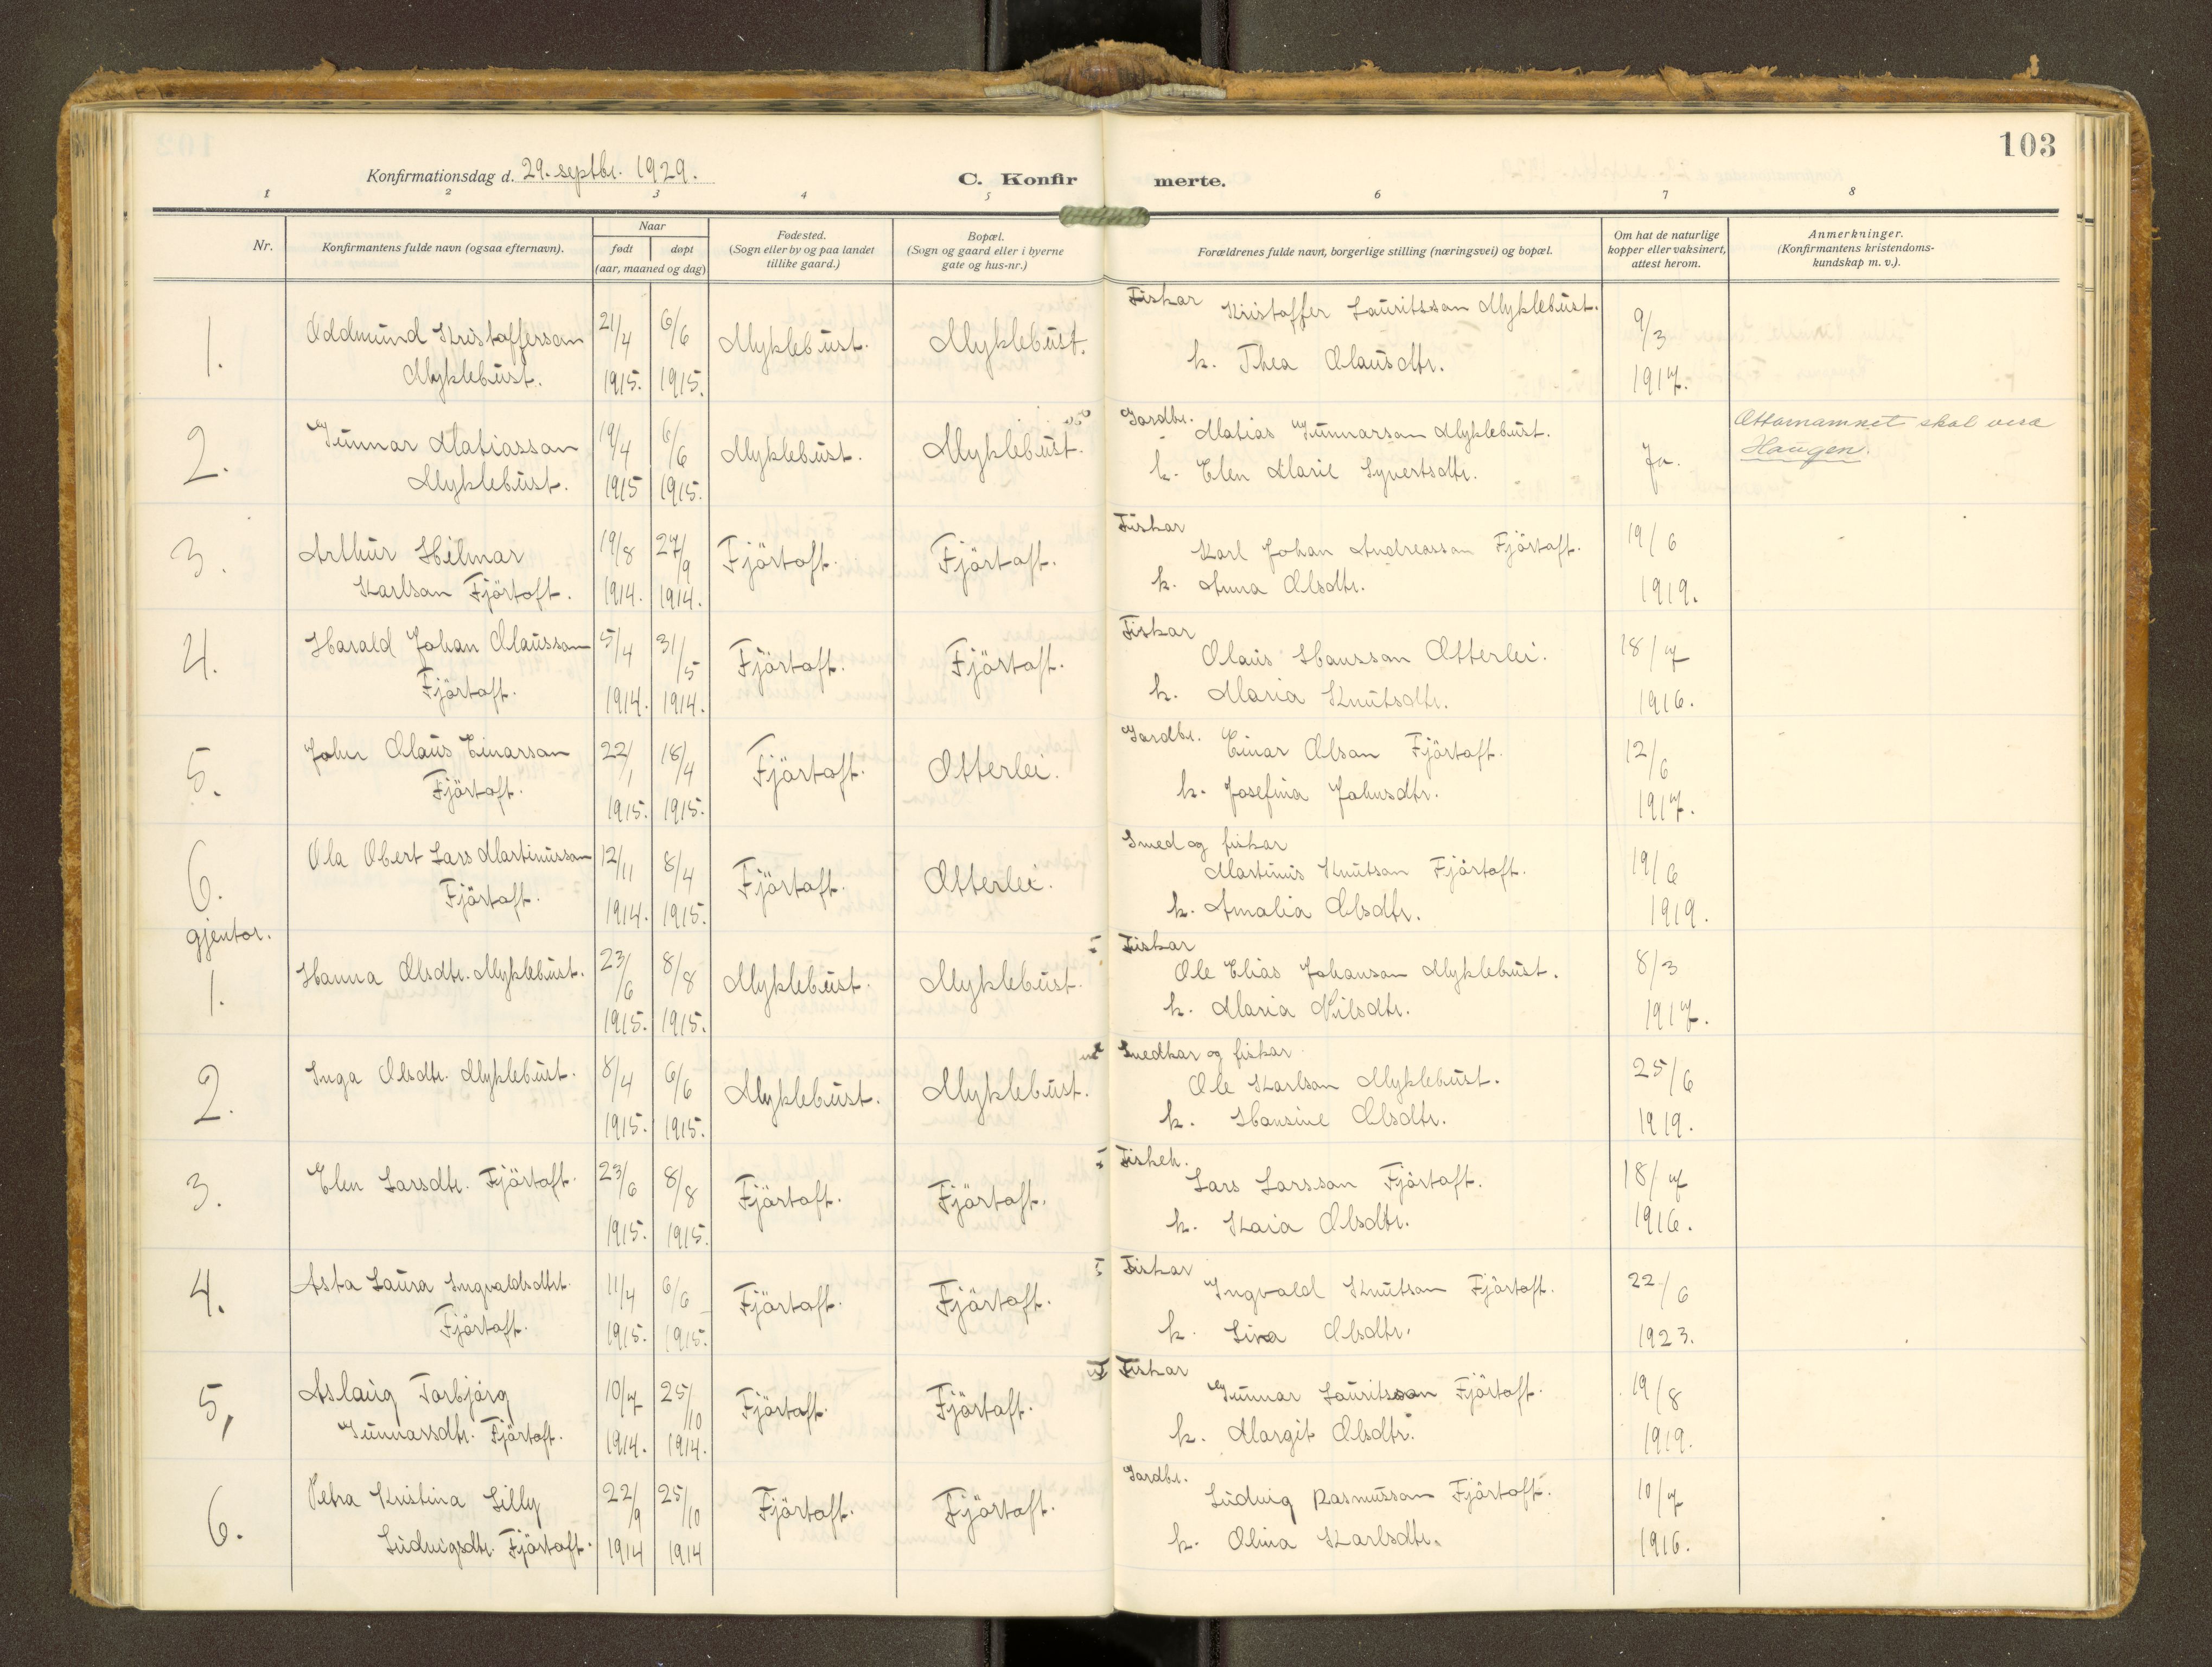 103
Konfirmationsdag d. 29. septbr. 1929.
C. Konfirmerte.
1 2 3 4 5 6 7 8
Nr.
Konfirmantens fulde navn (ogsaa efternavn).
Naar
født døpt
(aar, maaned og dag)
Fødested.
(Sogn eller by og paa landet
tillike gaard.)
Bopæl.
(Sogn og gaard eller i byerne
gate og hus-nr.)
Forældrenes fulde navnt, borgerlige stilling (næringsvei) og bopæl.
Om hat de naturlige
kopper eller vaksinert,
attest herom.
Anmerkninger.
(Konfirmantens kristendoms-
kundskap m. v.).
1.
Oddmund Kristofferson
Myklebust.
21/4 1915.
6/6 1915.
Myklebust.
Myklebust.
Fiskar
Kristoffer Lauritsson Myklebust.
k. Thea Olausdtr.
9/3 1917.
2.
Gunnar Matiasson
Myklebust.
19/4 1915
6/6 1915.
Myklebust.
Myklebust.
Gardbr.
Matias Gunnarson Myklebust.
k. Elen Marie Syvertsdtr.
Ja.
Ættarnamnet skal vera
Haugen.
3.
Arthur Hilmar
Karlson Fjörtoft.
19/8 1914.
27/9 1914.
Fjörtoft.
Fjörtoft.
Fiskar
Karl Johan Andreasson Fjörtoft.
k. Anna Olsdtr.
19/6 1919.
4.
Harald Johan Olausson
Fjörtoft.
5/4 1914.
31/5 1914.
Fjörtoft.
Fjörtoft.
Fiskar
Olaus Hansson Otterlei.
k. Maria Knutsdtr.
18/7 1916.
5.
John Olaus Einarson
Fjörtoft.
22/1 1915.
18/4 1915.
Fjörtoft.
Otterlei.
Gardbr.
Einar Olson Fjörtoft.
k. Josefina Johnsdtr.
12/6 1917.
6.
Ola Obert Lars Martinusson
Fjörtoft.
12/11 1914.
8/4 1915.
Fjörtoft.
Otterlei.
Smed og fiskar
Martinus Knutson Fjörtoft.
k. Amalia Olsdtr.
19/6 1919.
gjentor.
1.
Hanna Olsdtr. Myklebust.
23/6 1915.
8/8 1915.
Myklebust.
Myklebust.
Fiskar
Ole Elias Johanson Myklebust.
k. Maria Nilsdtr.
8/3 1917.
2.
Inga Olsdtr. Myklebust.
8/4 1915.
6/6 1915.
Myklebust.
Myklebust.
Snedkar og fiskar
Ole Karlson Myklebust.
k. Hansine Olsdtr.
25/6 1919.
3.
Elen Larsdtr. Fjörtoft.
23/6 1915.
8/8 1915.
Fjörtoft.
Fjörtoft.
Fiskeh.
Lars Larsson Fjörtoft.
k. Kaia Olsdtr.
18/7 1916.
4.
Asta Laura Ingvaldsdtr.
Fjörtoft.
11/4 1915.
6/6 1915.
Fjörtoft.
Fjörtoft.
Fiskar
Ingvald Knutson Fjörtoft.
k. Lina Olsdtr.
22/6 1923.
5,
Aslaug Torbjörg
Gunnarsdtr. Fjörtoft.
10/7 1914.
25/10 1914.
Fjörtoft.
Fjörtoft.
Fiskar
Gunnar Lauritsson Fjörtoft.
k. Margit Olsdtr.
19/8 1919.
6.
Petra Kristina Lilly
Ludvigsdtr. Fjörtoft.
22/9 1914
25/10 1914
Fjörtoft.
Fjörtoft.
Gardbr.
Ludvig Rasmusson Fjörtoft.
k. Olina Karlsdtr.
10/7 1916.